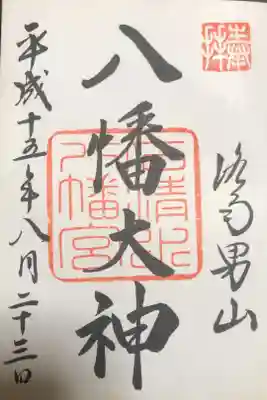 奉拝
洛南男山
八幡大神
石清水
八幡宮
平成十五年八月二十三日